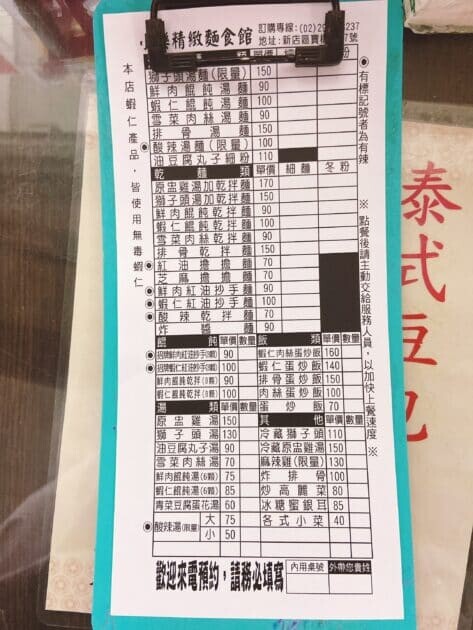 精緻麵食館
訂購專線:(02)2
237
地址:新店區寶
7號
本店蝦仁產品,皆使用無毒蝦仁
⊙有標記號者為有辣
※點餐後請主動交給服務人員,以加快上餐速度※
獅子頭湯麵(限量) 150
鮮肉餛飩湯麵 90
蝦仁餛飩湯麵 100
雪菜肉絲湯麵 90
排骨湯麵 150
⊙酸辣湯麵(限量) 100
油豆腐丸子細粉 110
乾麵類 單價 細麵 冬粉
原盅雞湯加乾拌麵 170
獅子頭湯加乾拌麵 150
鮮肉餛飩乾拌麵 90
蝦仁餛飩乾拌麵 100
雪菜肉絲乾拌麵 90
排骨乾麵 150
⊙紅油擔擔麵 70
芝麻擔擔麵 70
⊙鮮肉紅油抄手麵 90
⊙蝦仁紅油抄手麵 100
⊙酸辣乾拌麵 70
炸醬麵 90
餛飩 單價 數量 飯類 單價 數量
⊙招牌鮮肉紅油抄手(8顆) 90 蝦仁肉絲蛋炒飯 160
⊙招牌蝦仁紅油抄手(8顆) 100 蝦仁蛋炒飯 140
鮮肉餛飩乾拌(8顆) 90 排骨蛋炒飯 150
蝦仁餛飩乾拌(8顆) 100 肉絲蛋炒飯 100
湯類 單價 數量 蛋炒飯 70
原盅雞湯 150 其他 單價 數量
獅子頭湯 130 冷藏獅子頭 110
油豆腐丸子湯 90 冷藏原盅雞湯 150
雪菜肉絲湯 70 麻辣雞(限量) 130
鮮肉餛飩湯(6顆) 75 炸排骨 100
蝦仁餛飩湯(6顆) 85 炒高麗菜 80
青菜豆腐蛋花湯 60 冰糖蜜銀耳 85
⊙酸辣湯(限量) 大 75 各式小菜 40
小 50
歡迎來電預約,請務必填寫 內用桌號 外帶您貴姓
泰式豆